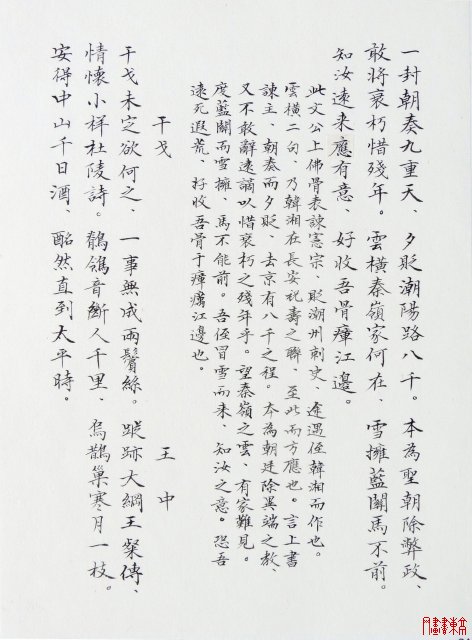 一封朝奏九重天、夕貶潮陽路八千。本為聖朝除弊政、
敢將衰朽惜殘年。雲橫秦嶺家何在、雪擁藍關馬不前。
知汝遠来應有意、好收吾骨瘴江邊。
此文公上佛骨表諫憲宗、貶潮州刺史、途遇侄韓湘而作也。
雲橫二句、乃韓湘在長安祝壽之聯、至此而方應也。言上書
諫主、朝奏而夕貶、去京有八千之程。本為朝廷除異端之教、
又不敢辭遠謫以惜衰朽之殘年乎。望秦嶺之雲、有家難見。
度藍關而雪擁、馬不能前。吾侄冒雪而来、知汝之意。恐吾
遠死遐荒、好收吾骨于瘴癘江邊也。
干戈 王中
干戈未定欲何之、一事無成兩鬢絲。蹤跡大綱王粲傳、
情懷小样杜陵詩。鶺鴒音斷人千里、烏鵲巢寒月一枝。
安得中山千日酒、酩然直到太平時。